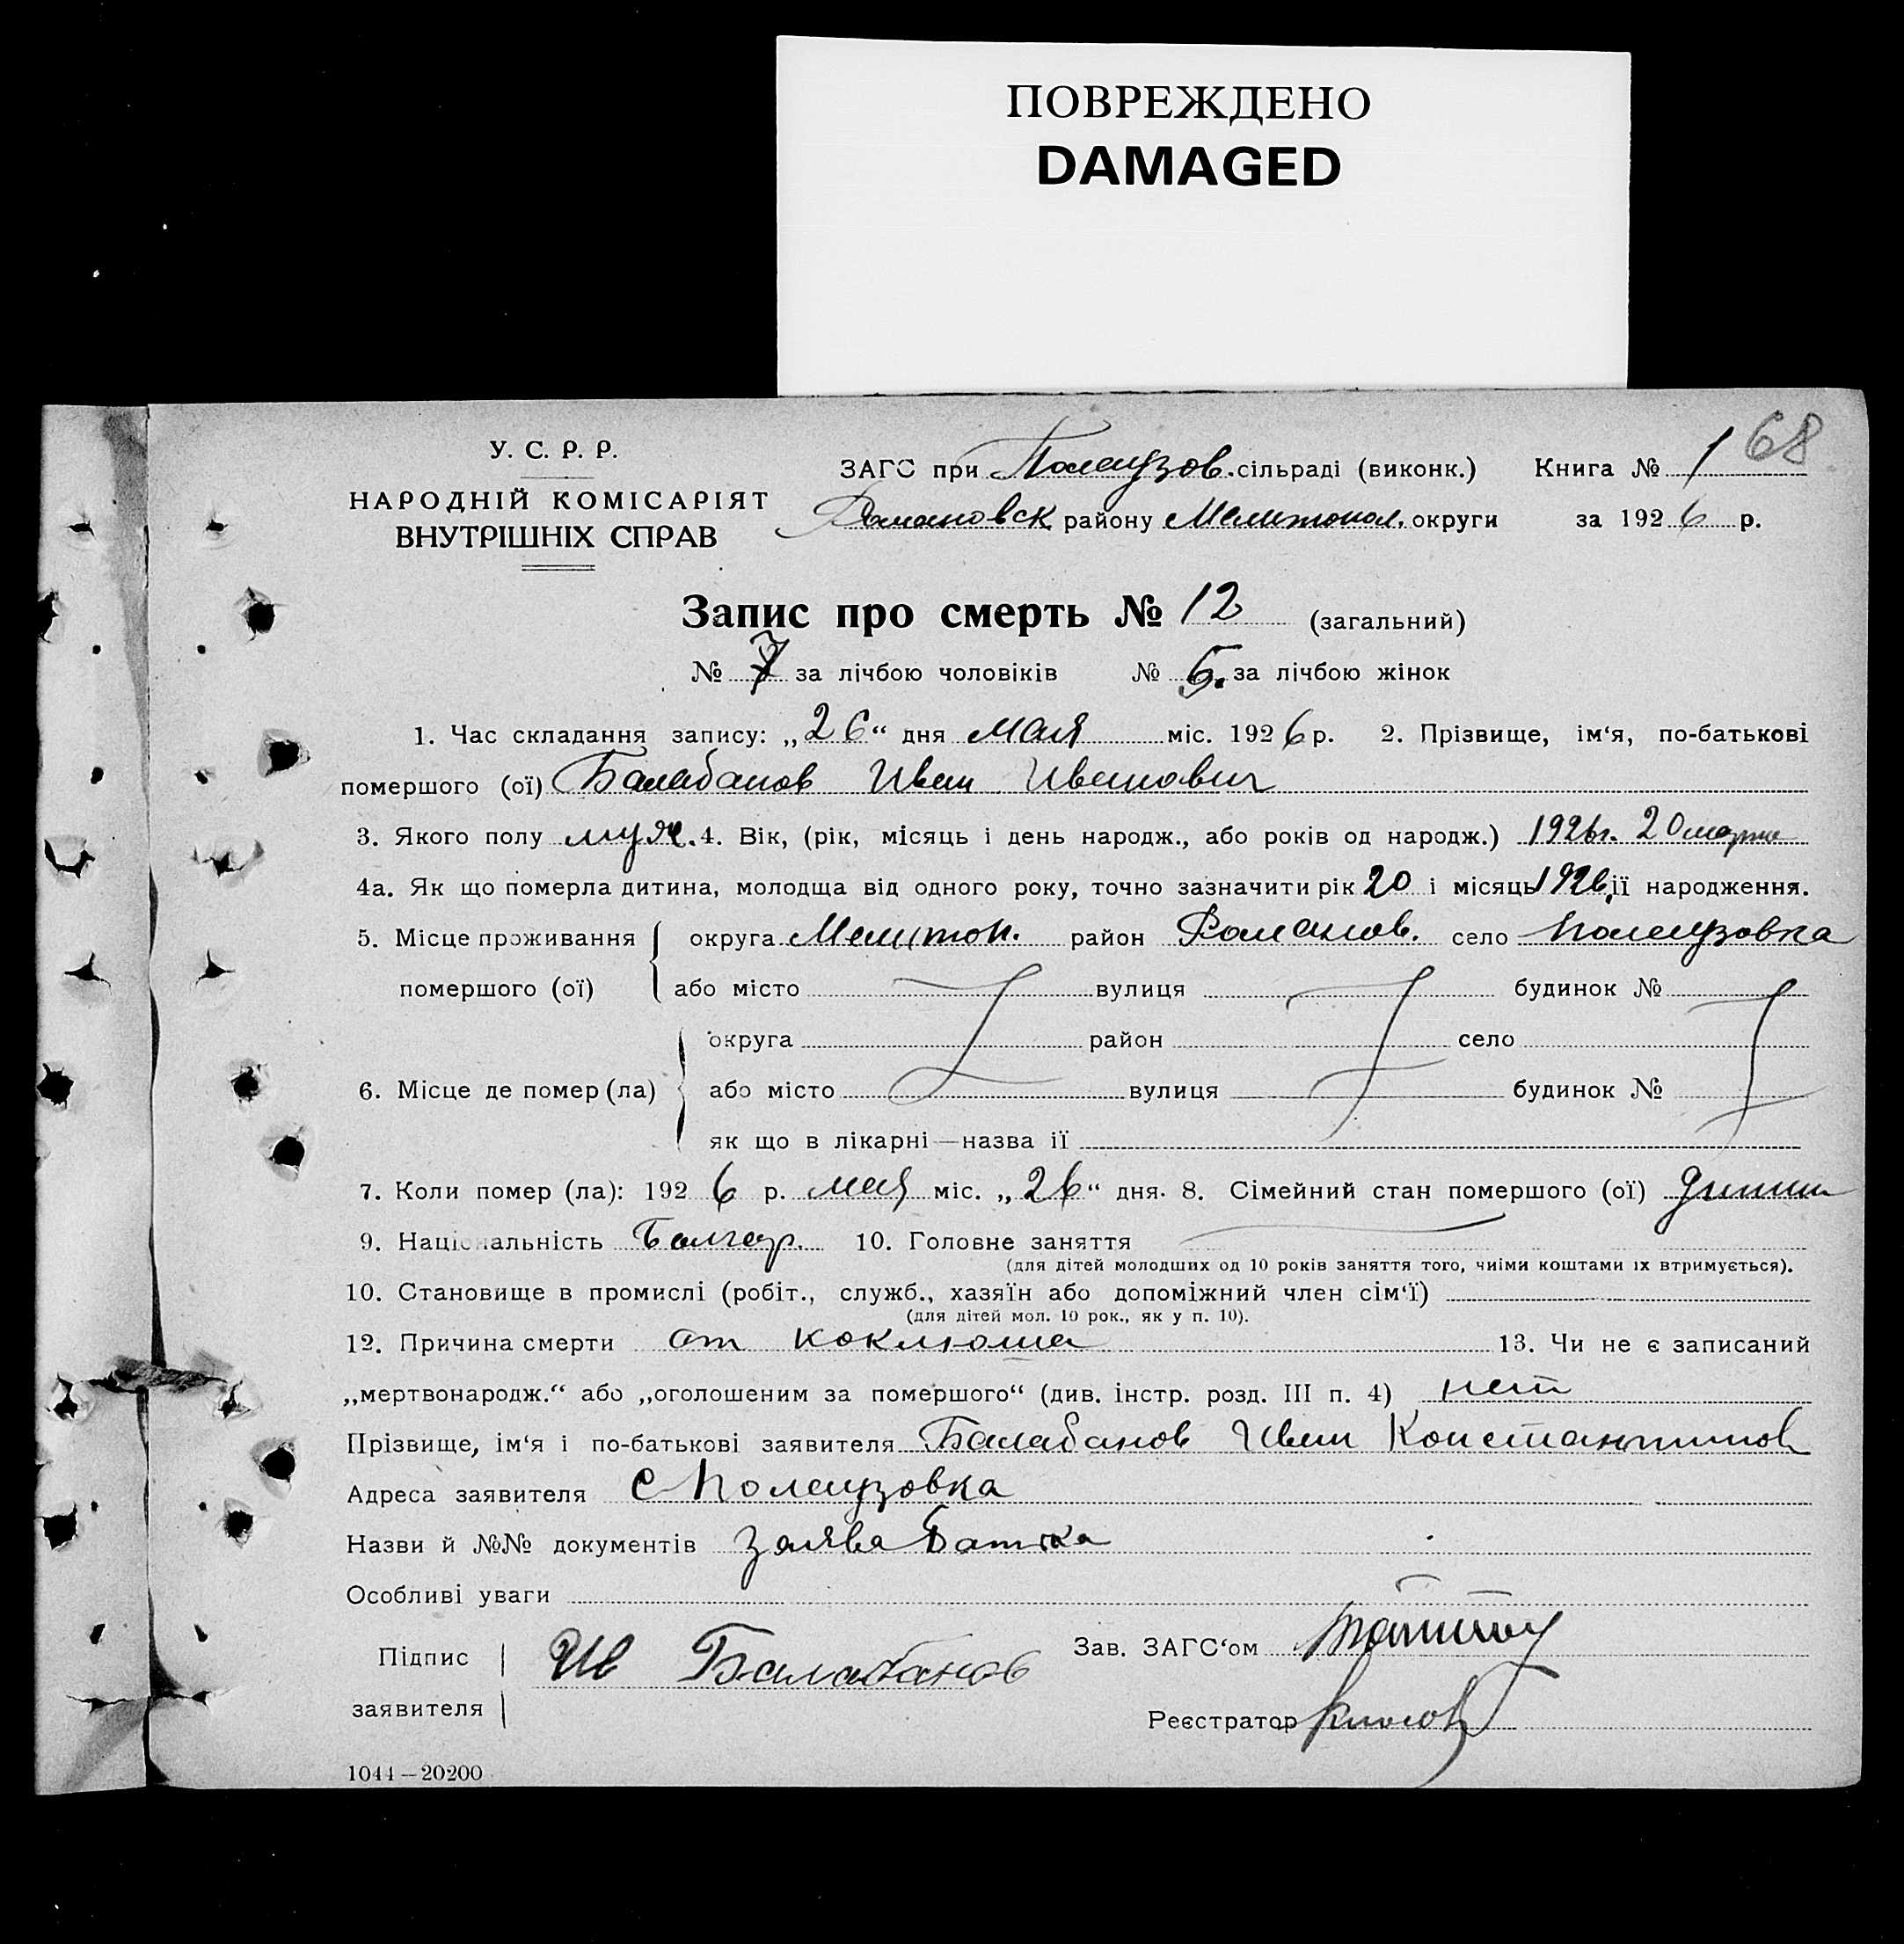 ПОВРЕЖДЕНО
DAMAGED
68
У. С. Р. Р.
НАРОДНІЙ КОМІСАРІЯТ
ВНУТРІШНІХ СПРАВ
ЗАГС при Полаузов. сільраді (виконк.) Книга № 1
Романовск району Мелитопол. округи за 1926 р.
Запис про смерть № 12 (загальний)
№ 7 за лічбою чоловіків № 5. за лічбою жінок
1. Час складання запису: „26“ дня мая міс. 1926 р. 2. Прізвище, ім‘я, по-батькові
помершого (ої) Балабанов Иван Иванович
3. Якого полу муж. 4. Вік, (рік, місяць і день народж., або років од народж.) 1926г. 20 марта
4а. Як що померла дитина, молодща від одного року, точно зазначити рік 20 і місяць 1926 її народження.
5. Місце проживання округа Мелитоп. район Романов. село Полаузовка
помершого (ої) або місто вулиця будинок №
округа район село
6. Місце де помер (ла) або місто вулиця будинок №
як що в лікарні—назва ії
7. Коли помер (ла): 1926 р. мая міс. „26“ дня. 8. Сімейний стан помершого (ої)
9. Національність Болгар. 10. Головне заняття
(для дітей молодших од 10 років заняття того, чиїми коштами їх втримується).
10. Становище в промислі (робіт., служб., хазяїн або допоміжний член сім‘ї)
(для дітей мол. 10 рок., як у п. 10).
12. Причина смерти от коклюша 13. Чи не є записаний
„мертвонародж.“ або „оголошеним за помершого“ (див. інстр. розд. III п. 4) нет
Прізвище, ім‘я і по-батькові заявителя Балабанов Иван Константинов
Адреса заявителя с Полаузовка
Назви й №№ документів заява Батька
Особливі уваги
Підпис заявителя Ив Балабанов
Зав. ЗАГС‘ом
Реєстратор
1044—20200